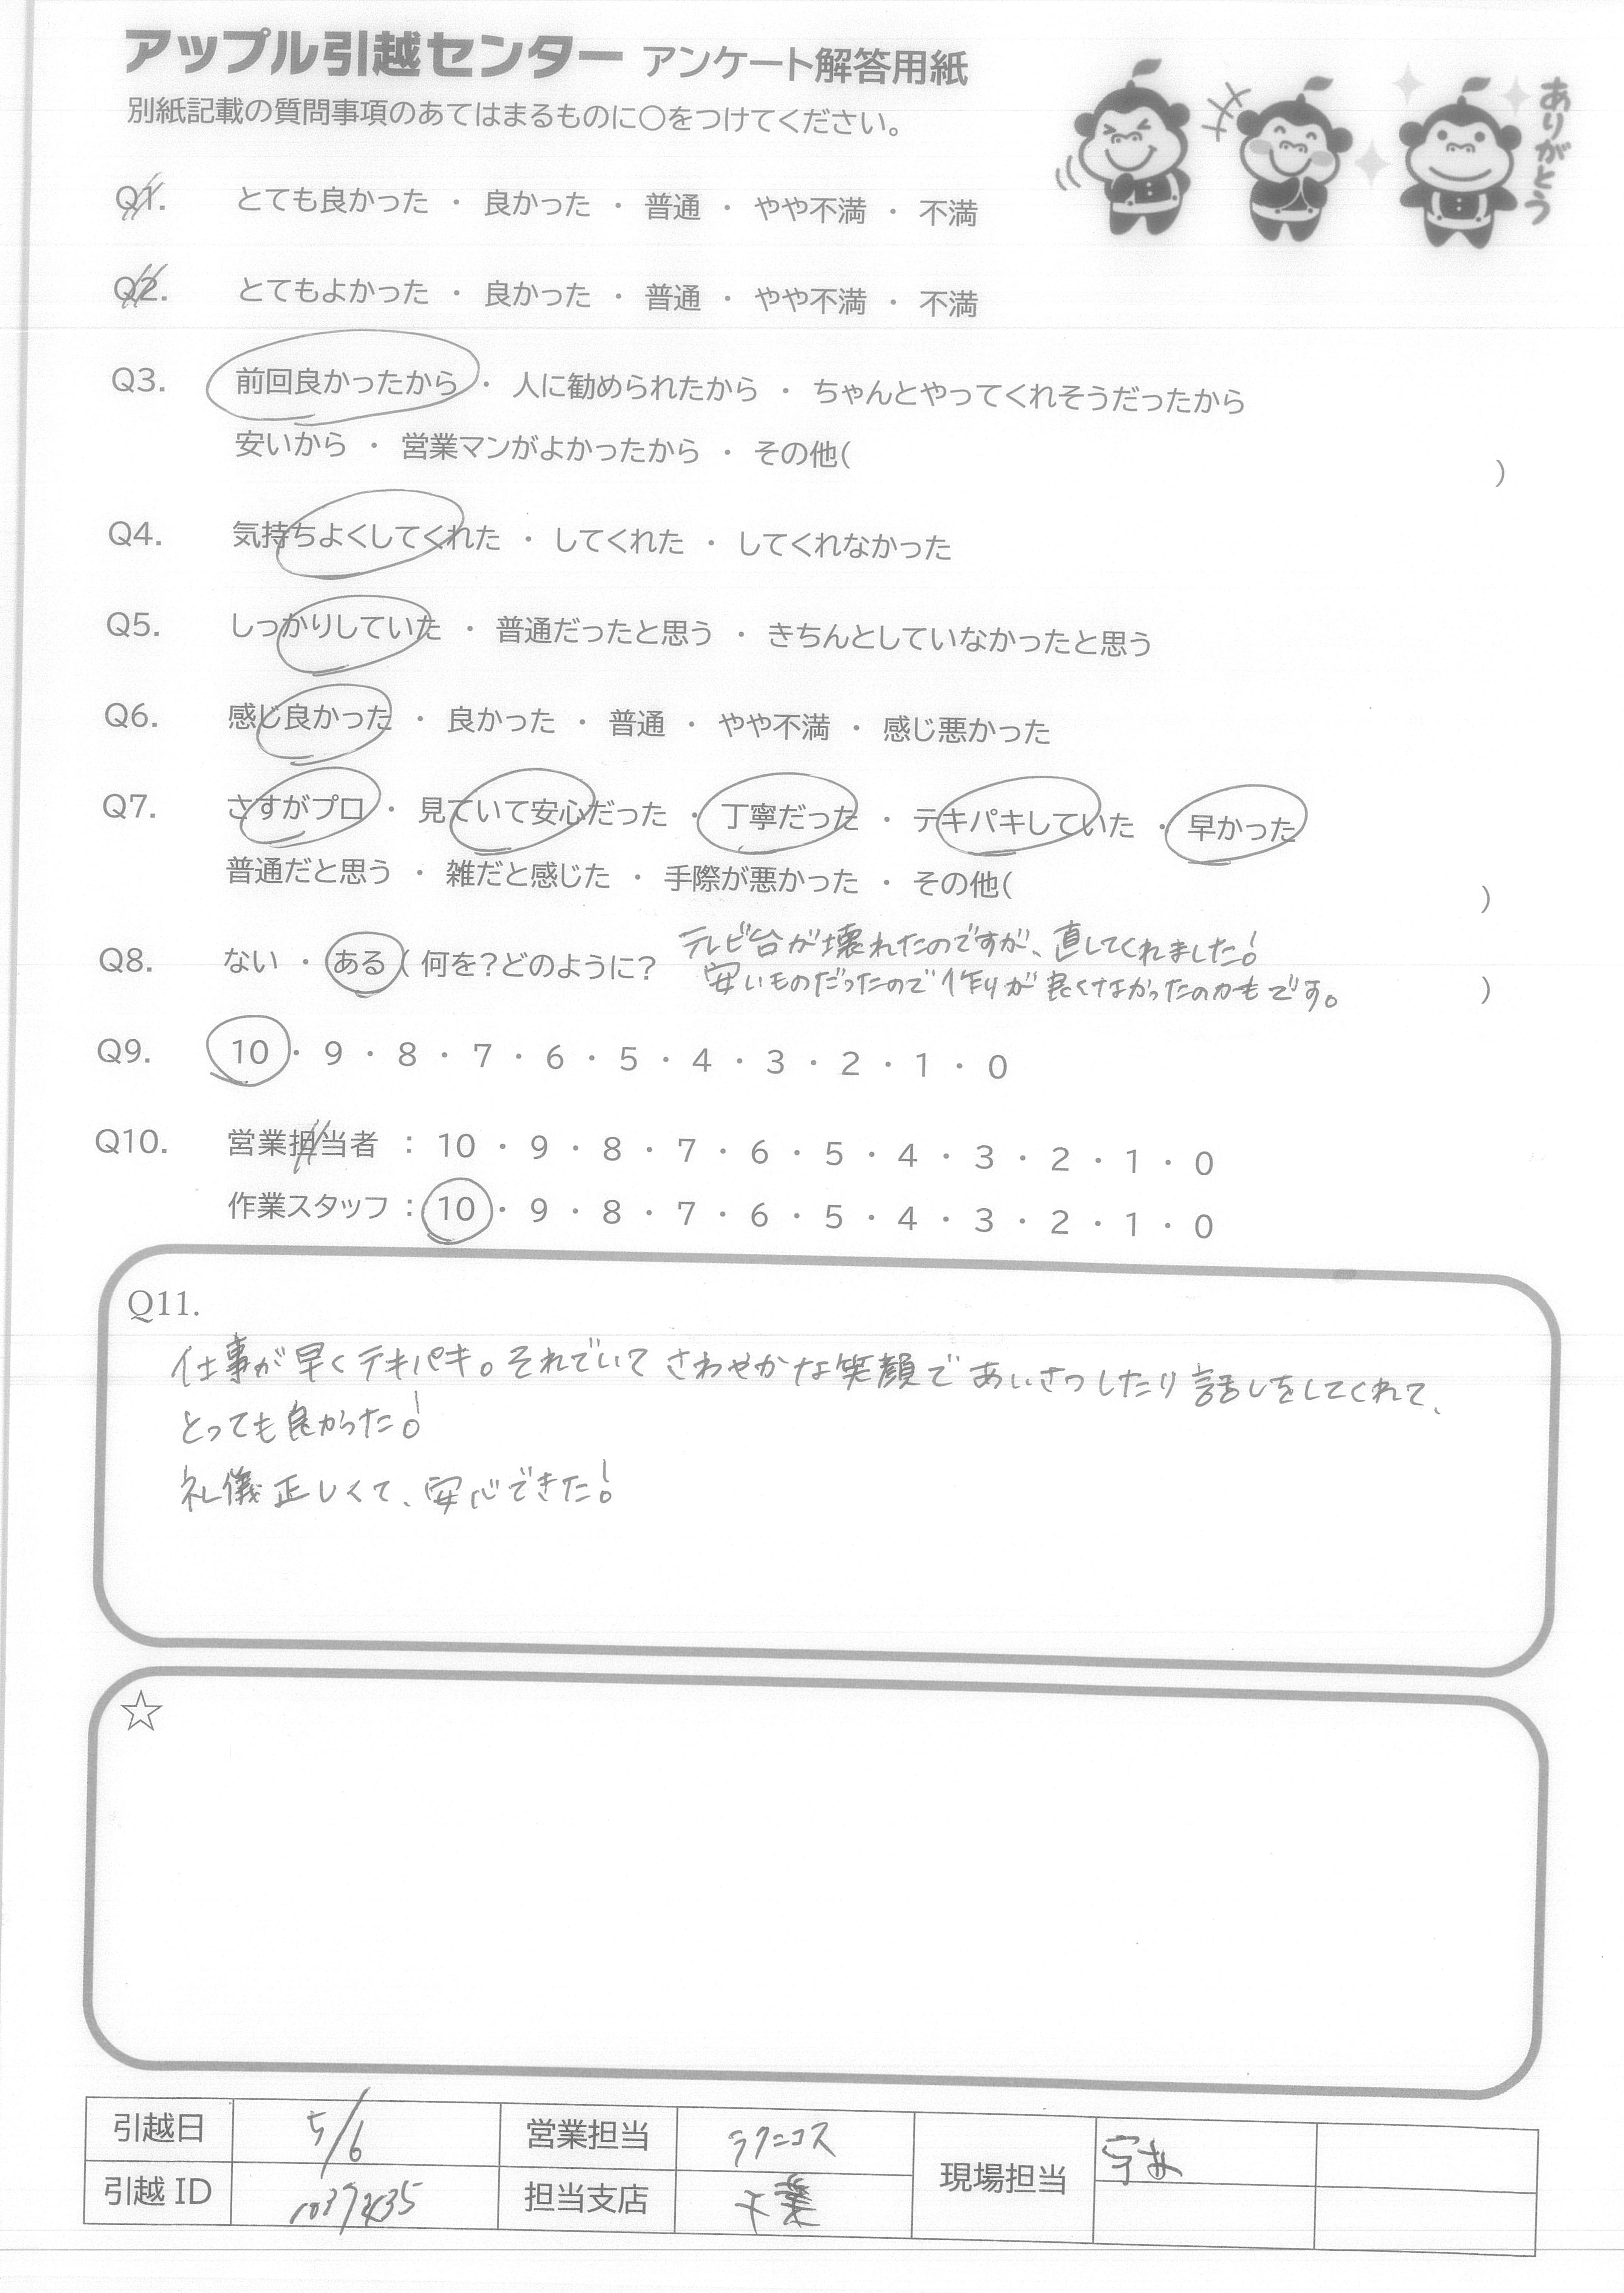 アップル引越センター アンケート解答用紙
別紙記載の質問事項のあてはまるものに○をつけてください。
ありがとう
Q1. とても良かった ・ 良かった ・ 普通 ・ やや不満 ・ 不満
Q2. とてもよかった ・ 良かった ・ 普通 ・ やや不満 ・ 不満
Q3. 前回良かったから ・ 人に勧められたから ・ ちゃんとやってくれそうだったから
安いから ・ 営業マンがよかったから ・ その他( )
Q4. 気持ちよくしてくれた ・ してくれた ・ してくれなかった
Q5. しっかりしていた ・ 普通だったと思う ・ きちんとしていなかったと思う
Q6. 感じ良かった ・ 良かった ・ 普通 ・ やや不満 ・ 感じ悪かった
Q7. さすがプロ ・ 見ていて安心だった ・ 丁寧だった ・ テキパキしていた ・ 早かった
普通だと思う ・ 雑だと感じた ・ 手際が悪かった ・ その他( )
Q8. ない ・ ある ( 何を?どのように? テレビ台が壊れたのですが、直してくれました!
安いものだったので作りが良くなかったのかもです。 )
Q9. 10 ・ 9 ・ 8 ・ 7 ・ 6 ・ 5 ・ 4 ・ 3 ・ 2 ・ 1 ・ 0
Q10. 営業担当者 : 10 ・ 9 ・ 8 ・ 7 ・ 6 ・ 5 ・ 4 ・ 3 ・ 2 ・ 1 ・ 0
作業スタッフ : 10 ・ 9 ・ 8 ・ 7 ・ 6 ・ 5 ・ 4 ・ 3 ・ 2 ・ 1 ・ 0
Q11.
仕事が早くテキパキ。それでいてさわやかな笑顔であいさつしたり話しをしてくれて、
とっても良かった!
礼儀正しくて、安心できた!
☆
引越日 5/6 営業担当 ラクニコス 現場担当
引越 ID 担当支店 千葉